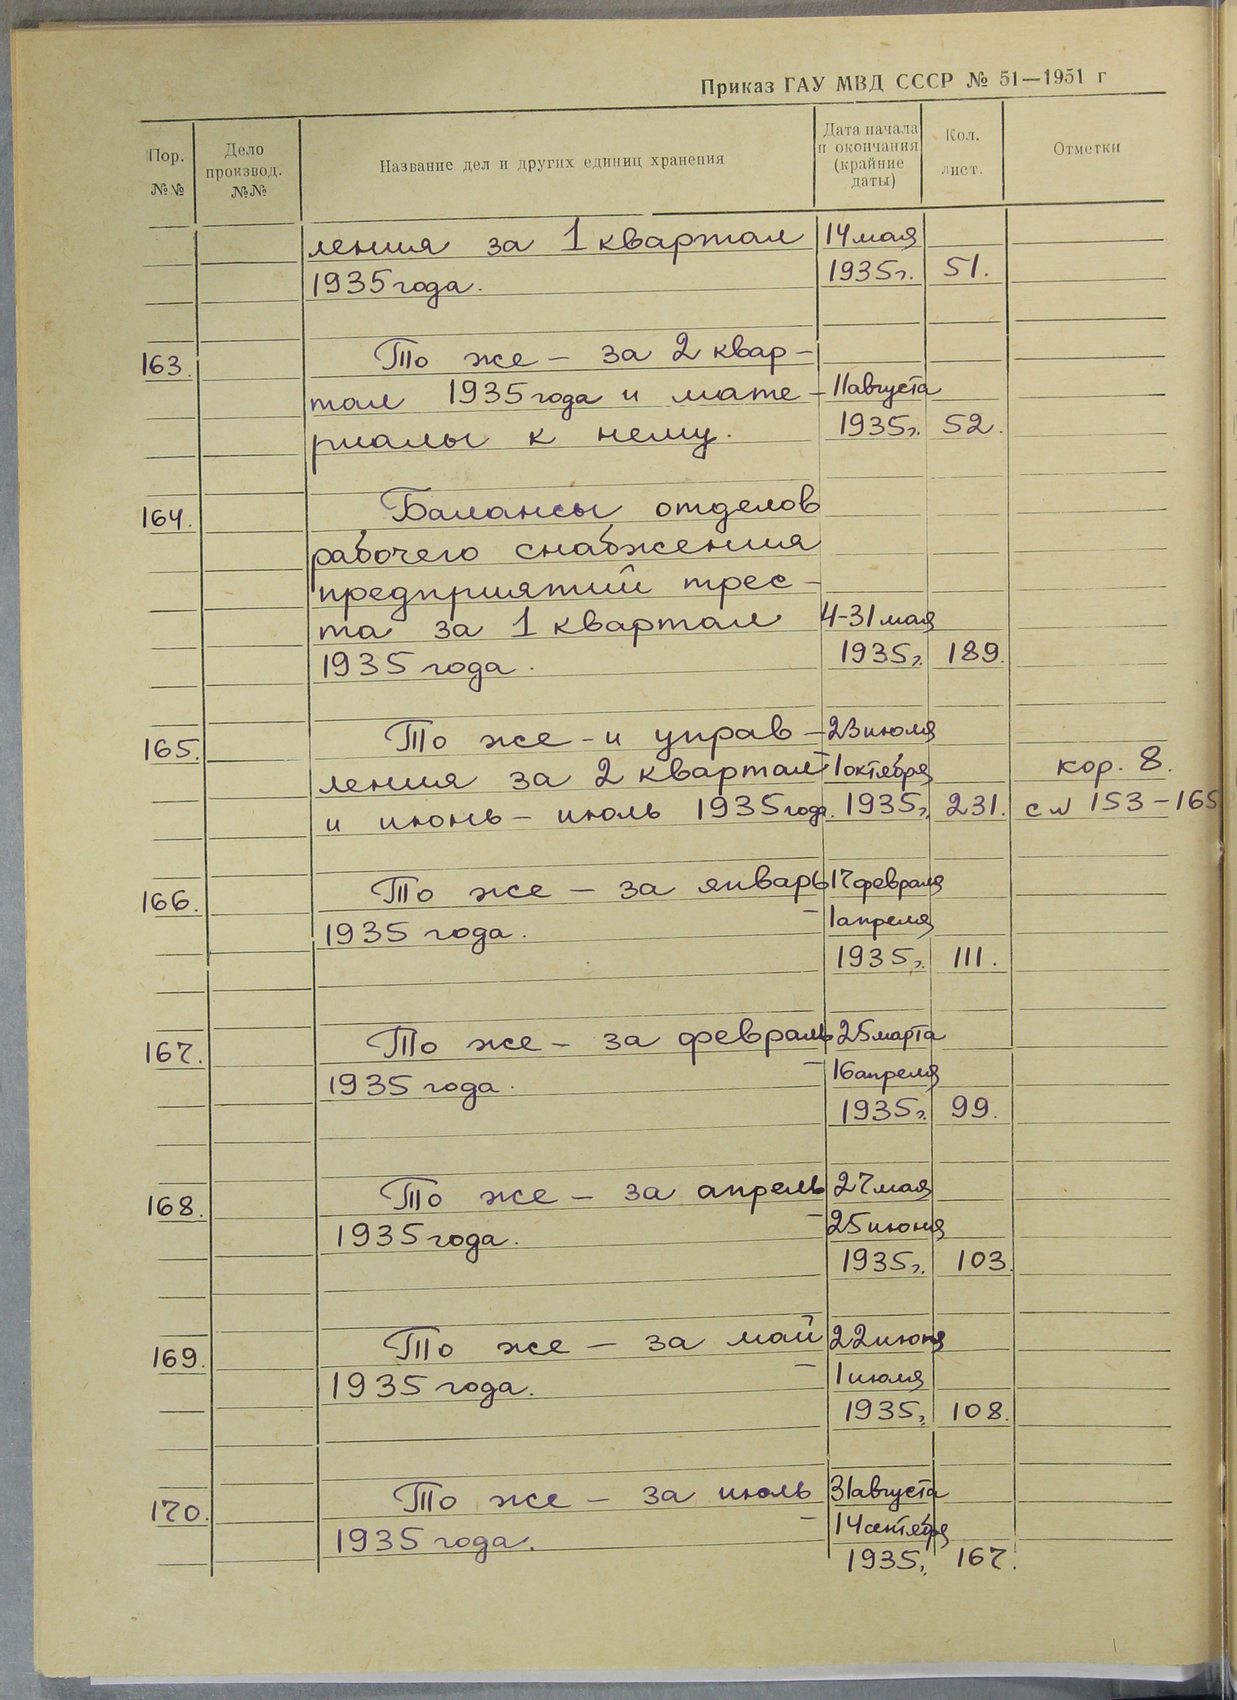 Приказ ГАУ МВД СССР № 51—1951 г
Пор. №№ Дело производ. №№ Название дел и других единиц хранения Дата начала и окончания (крайние даты) Кол. лист. Отметки
ления за 1 квартал 14 мая
1935 года. 1935 г. 51.
163. То же – за 2 квар-
тал 1935 года и мате- 11 августа
риалы к нему. 1935 г. 52.
164. Балансы отделов
рабочего снабжения
предприятий трес-
та за 1 квартал 4-31 мая
1935 года. 1935 г. 189.
165. То же - и управ- 23 июля
ления за 2 квартал – 1 октября кор. 8.
и июнь – июль 1935 года. 1935 г. 231. с № 153 – 165
166. То же – за январь 17 февраля
1935 года. – 1 апреля
1935 г. 111.
167. То же – за февраль 25 марта
1935 года. – 16 апреля
1935 г. 99.
168. То же – за апрель 27 мая
1935 года. – 25 июня
1935 г. 103.
169. То же – за май 22 июня
1935 года. – 1 июля
1935 г. 108.
170. То же – за июль 31 августа
1935 года. – 14 сентября
1935 г. 167.